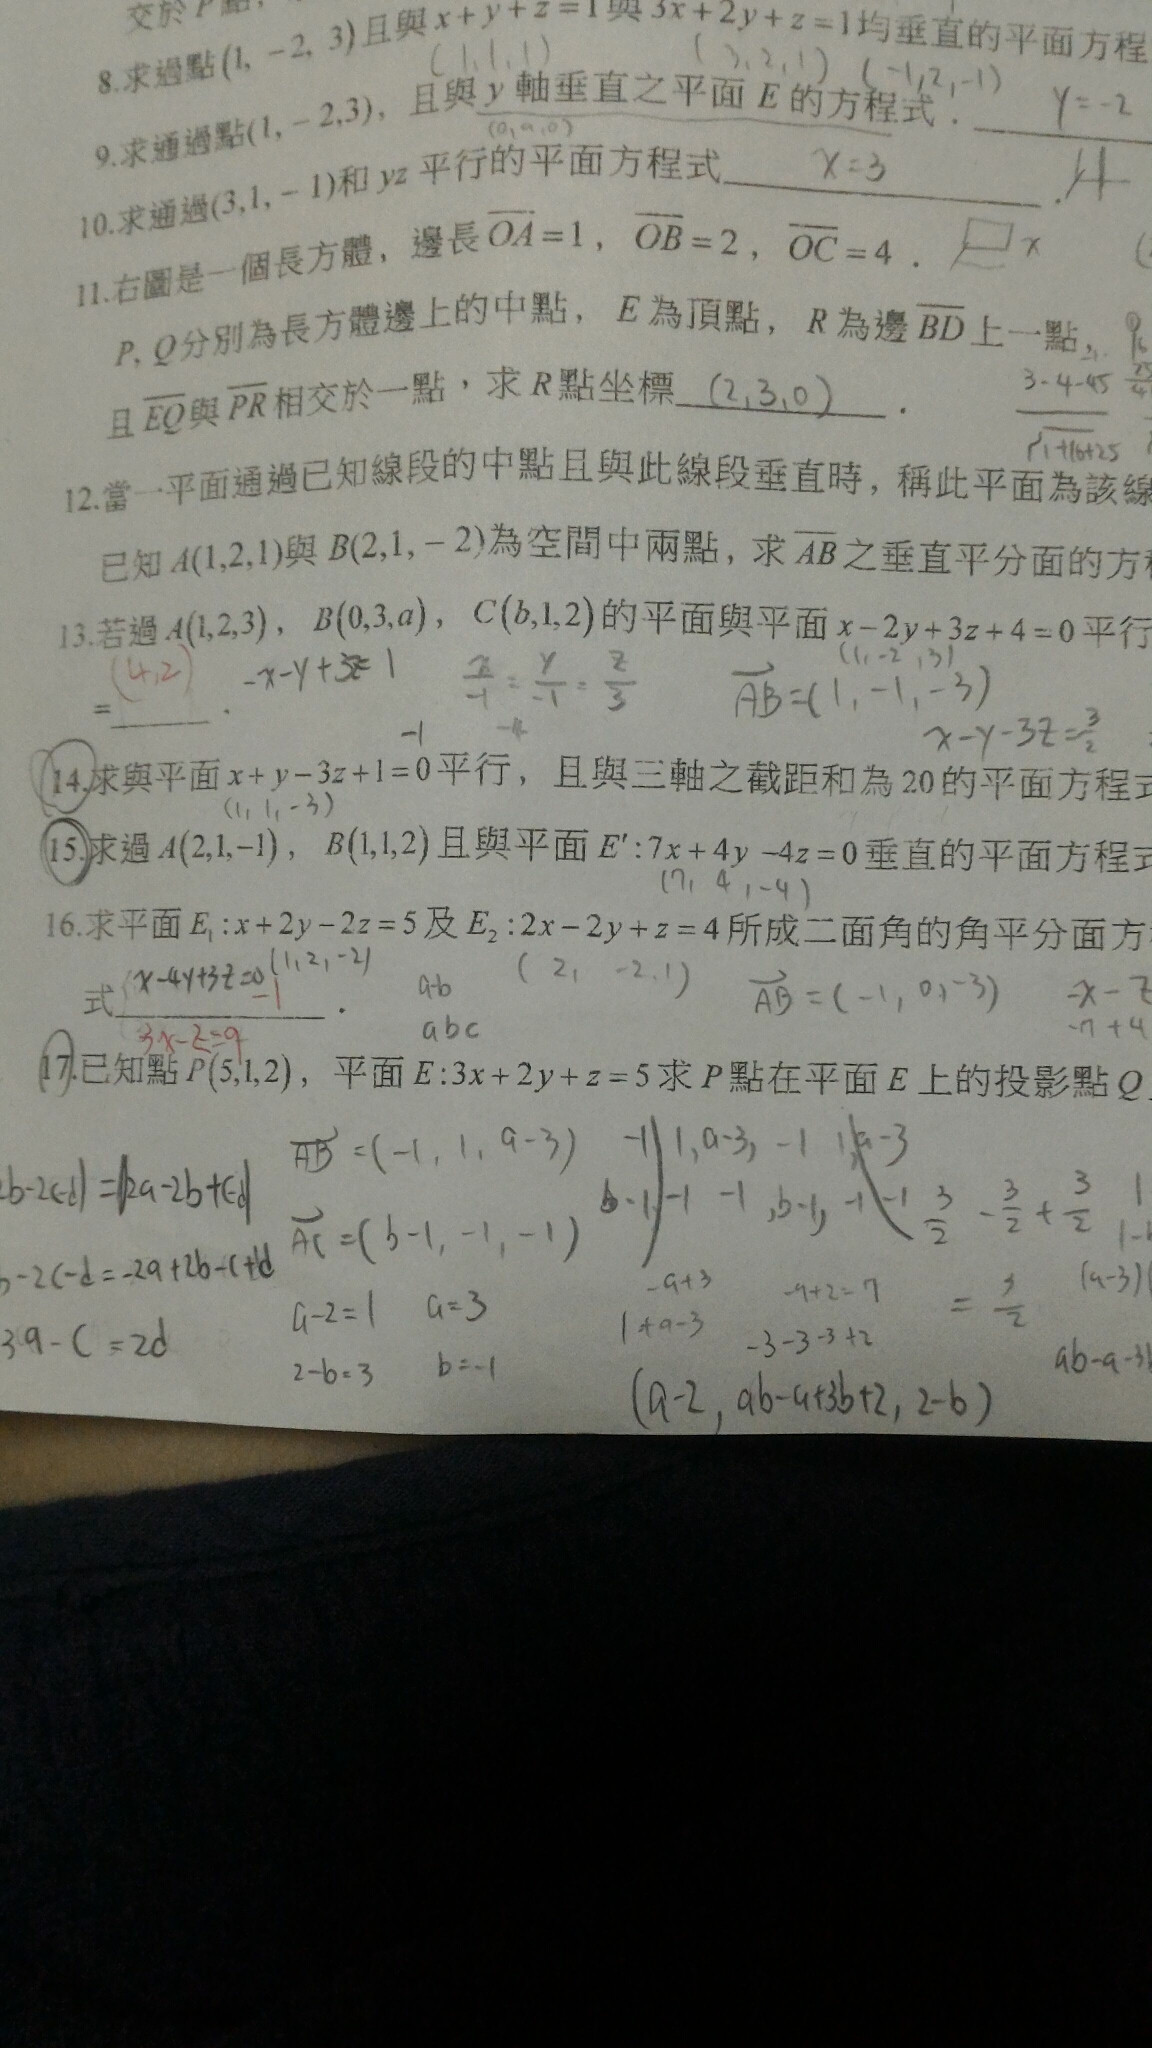 交於P點,
8.求過點(1, -2, 3)且與x+y+z=1與3x+2y+z=1均垂直的平面方程
(1,1,1) (3,2,1) (-1,2,-1)
9.求通過點(1,-2,3), 且與y軸垂直之平面E的方程式. y=-2
(0,a,0)
10.求通過(3,1,-1)和yz平行的平面方程式 x=3 .
11.右圖是一個長方體, 邊長OA=1, OB=2, OC=4. x
P, Q分別為長方體邊上的中點, E為頂點, R為邊BD上一點,
且EQ與PR相交於一點,求R點坐標 (2,3,0) .
3-4-45
√1+16+25
12.當一平面通過已知線段的中點且與此線段垂直時, 稱此平面為該線
已知A(1,2,1)與B(2,1,-2)為空間中兩點, 求AB之垂直平分面的方
13.若過A(1,2,3), B(0,3,a), C(b,1,2)的平面與平面x-2y+3z+4=0平行
(4,2) -x-y+3z=1 x/-1=y/-1=z/3 (1,-2,3)
= . AB=(1,-1,-3)
x-y-3z=3/2
-1 -4
14.求與平面x+y-3z+1=0平行, 且與三軸之截距和為20的平面方程式
(1,1,-3)
15.求過A(2,1,-1), B(1,1,2)且與平面E':7x+4y-4z=0垂直的平面方程式
(7,4,-4)
16.求平面E₁:x+2y-2z=5及E₂:2x-2y+z=4所成二面角的角平分面方
(1,2,-2) (2,-2,1)
式 x-4y+3z=0 -1 . ab AB=(-1,0,-3) -x-z
3x-z=9 abc -7+4
17.已知點P(5,1,2), 平面E:3x+2y+z=5求P點在平面E上的投影點Q
AB=(-1,1,a-3) -1 1,a-3,-1 1,a-3
2b-2c-d|=|2a-2b+c-d| b-1,-1 -1,b-1,-1 -1 3/2-3/2+3/2
AC=(b-1,-1,-1)
b-2c-d=-2a+2b-c+d
a-2=1 a=3 -a+3 -a+2=7
1+a-3 -3-3-3+2
3a-c=2d 2-b=3 b=-1
(a-2,ab-a+3b+2,2-b)